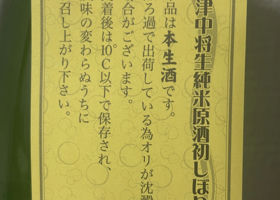 津中将生純米原酒初しぼり
品は本生酒です。
ろ過で出荷している為オリが沈澱
合がございます。
着後は10℃以下で保存され、
味の変わらぬうちに
召し上がり下さい。